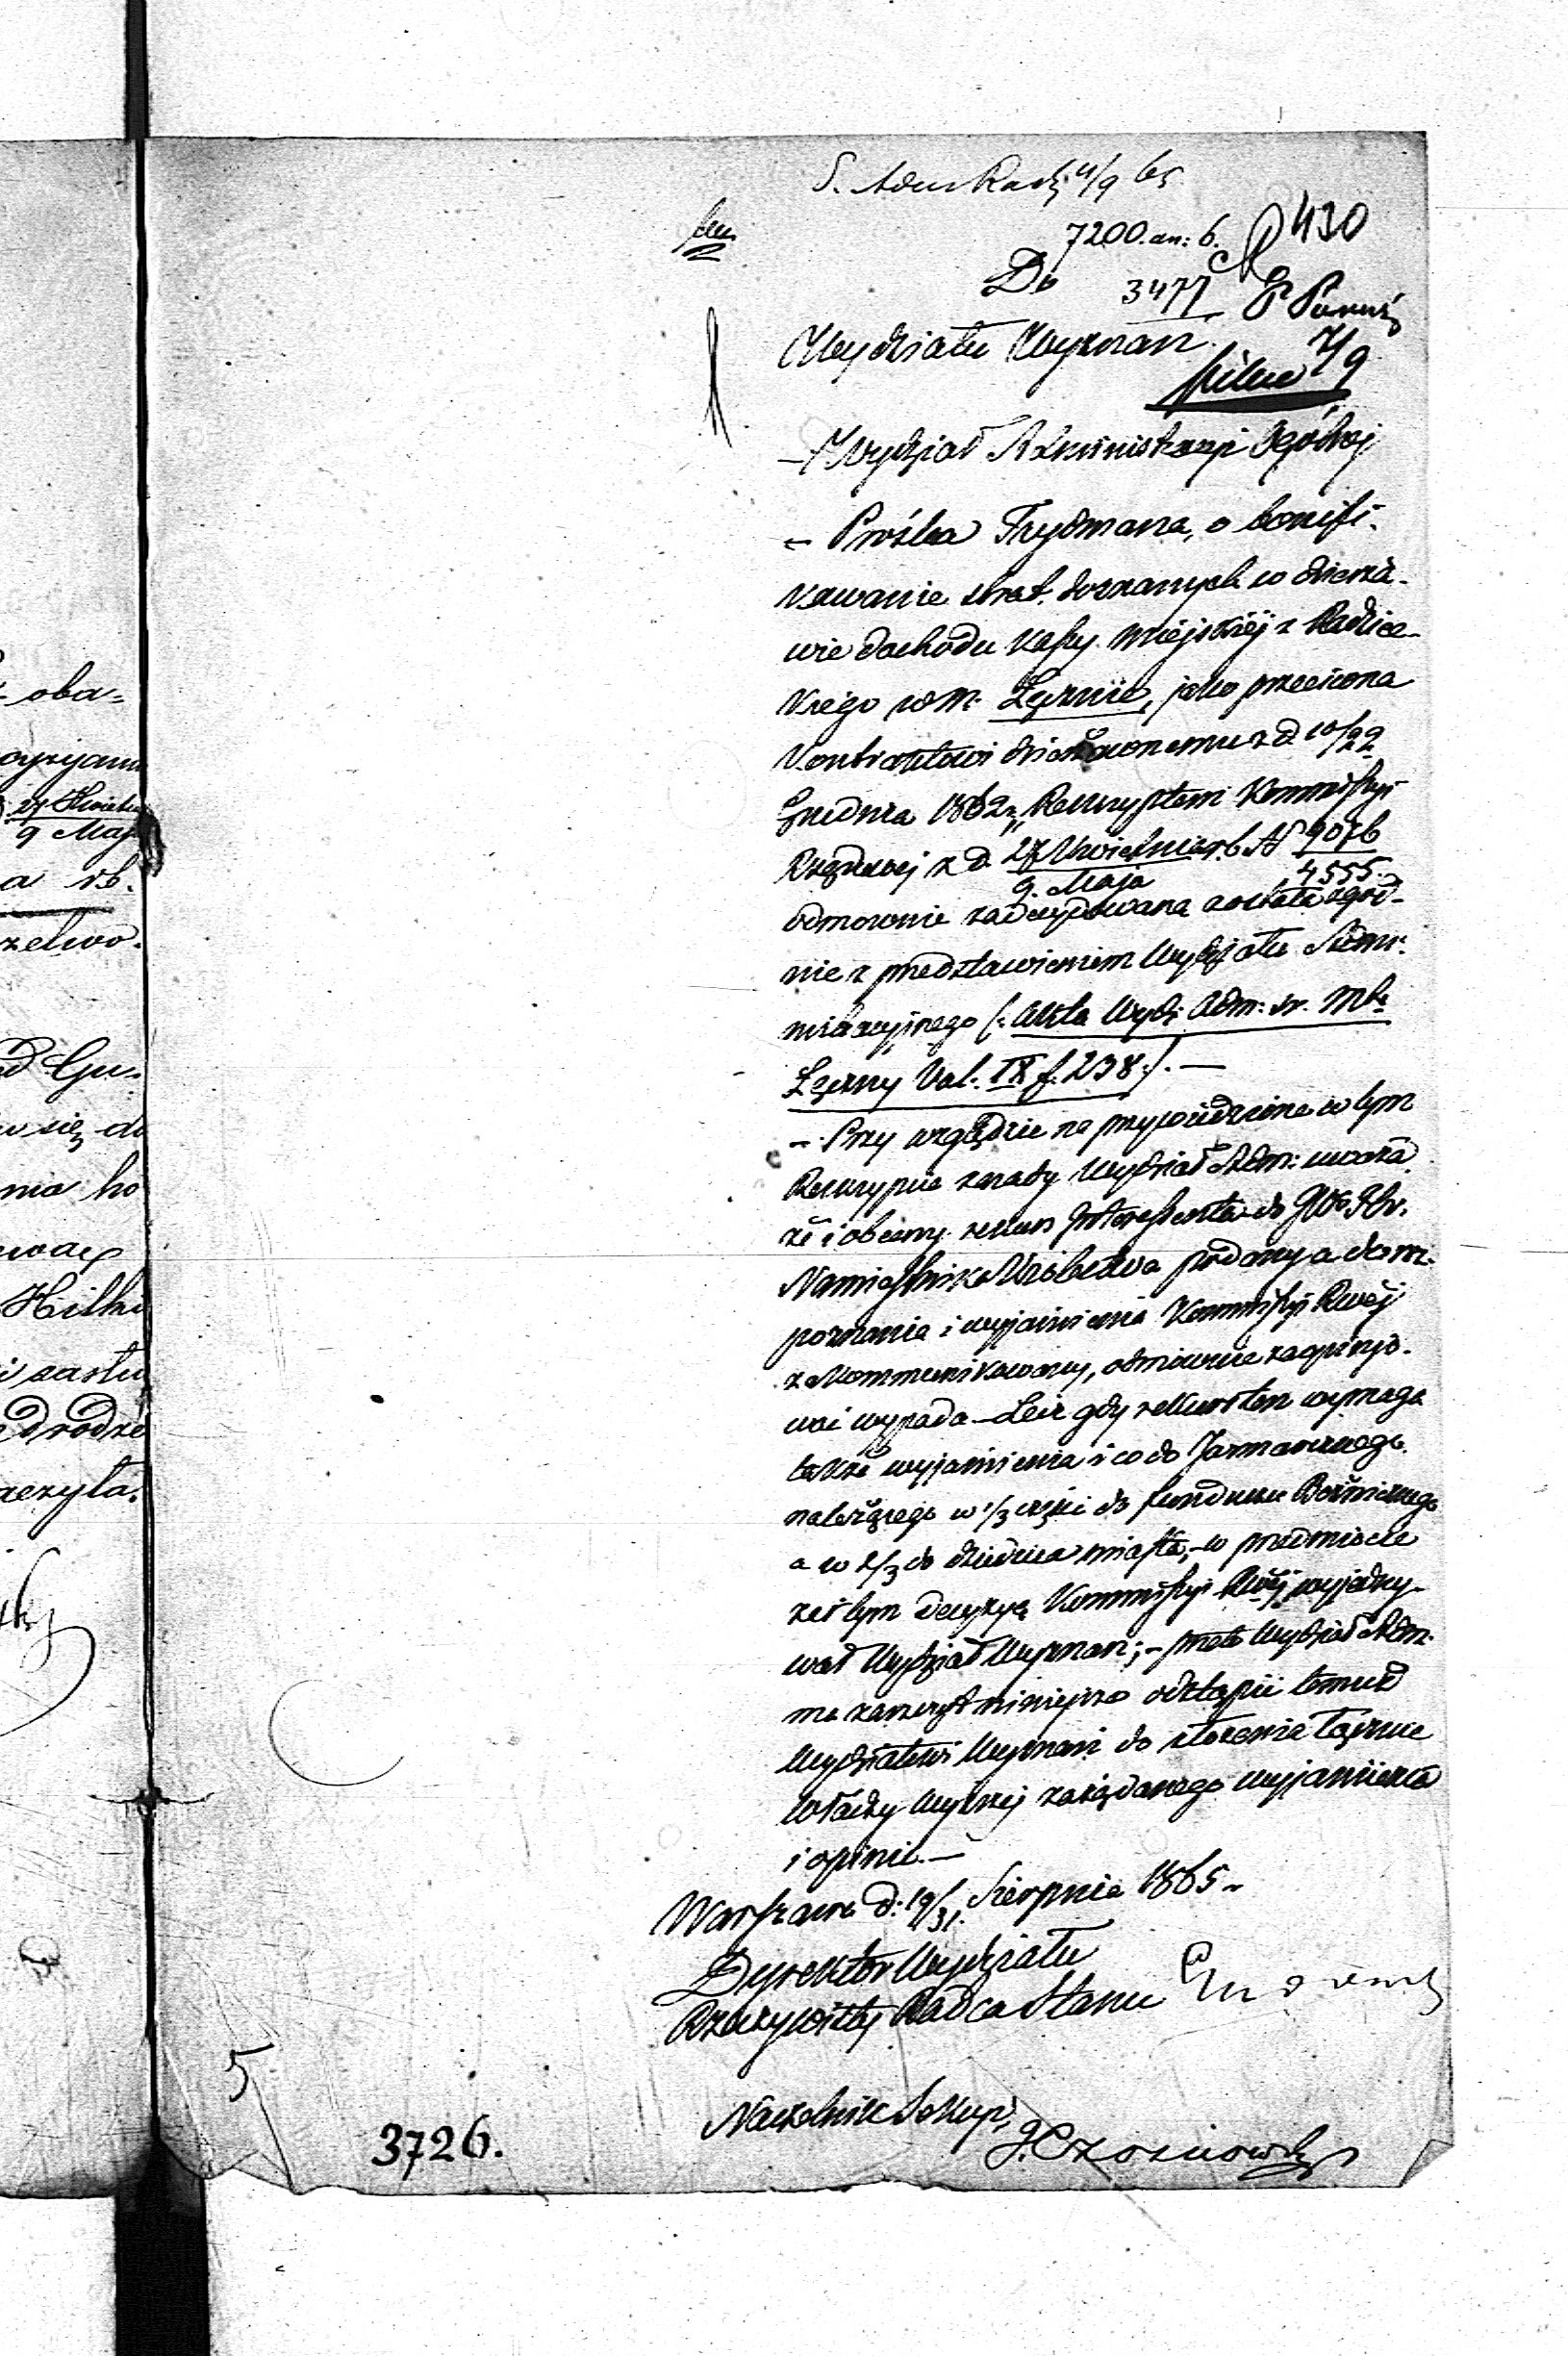 oba-
27 Kwietn
9 Maj
a rb.
zelwo.
d Gu-
się do
nia ho
Hilki
i zastu
drodze
rezyta.
4/9 65
7200. an: 6. 430
Do 3477
Wydziału Wyznań.
pilne 7/9
– Wydział Administracji Ogólnej
– Prośba Frydmana, o bonifi-
kowanie strat doznanych w dzierża-
wie dochodu Kassy miejskiej z Radlice-
kiego w m. Łęcznie, jako przeciwna
Kontraktowi dzierżawnemu z d. 10/22
Grudnia 1862 r., Reskryptem Kommissyi
Rządowej z d. 27 Kwietnia / 9. Maja r. b. N 9076 / 4555.
odmownie zadecydowana została zgod-
nie z przedstawieniem Wydziału Admi-
nistracyjnego (: Akta Wydz. Adm: w. Mta
Łęczny Vol. IX f. 238 :). –
– Przy względzie na przywiedzione w tym
Reskrypcie zasady Wydział Adm: uważa
że i obecny rekurs Interessenta do JWo Hr.
Namiestnika Królestwa podany a do roz-
poznania i wyjaśnienia Kommissyi Rwej
zakommunikowany, odmownie zaopinjo-
wać wypada – Lecz gdy rekurs ten wymaga
także wyjaśnienia i co do Jarmarcznego
należącego w 1/3 części do funduszu Bożniczego
a w 2/3 do dziedzica miasta; – w przedmiocie
zaś tym decyzyą Kommissyi Rwej wyjedny-
wał Wydział Wyznań; – przeto Wydział Adm.
ma zaszczyt niniejsze odstąpić temuż
Wydziałowi Wyznań do złożenia łącznie
Władzy Wyższej zażądanego wyjaśnienia
i opinii. –
Warszawa d: 19/31. Sierpnia 1865 r.
Dyrektor Wydziału
Rzeczywisty Radca Stanu
Naczelnik Sekcyi
5
3726.